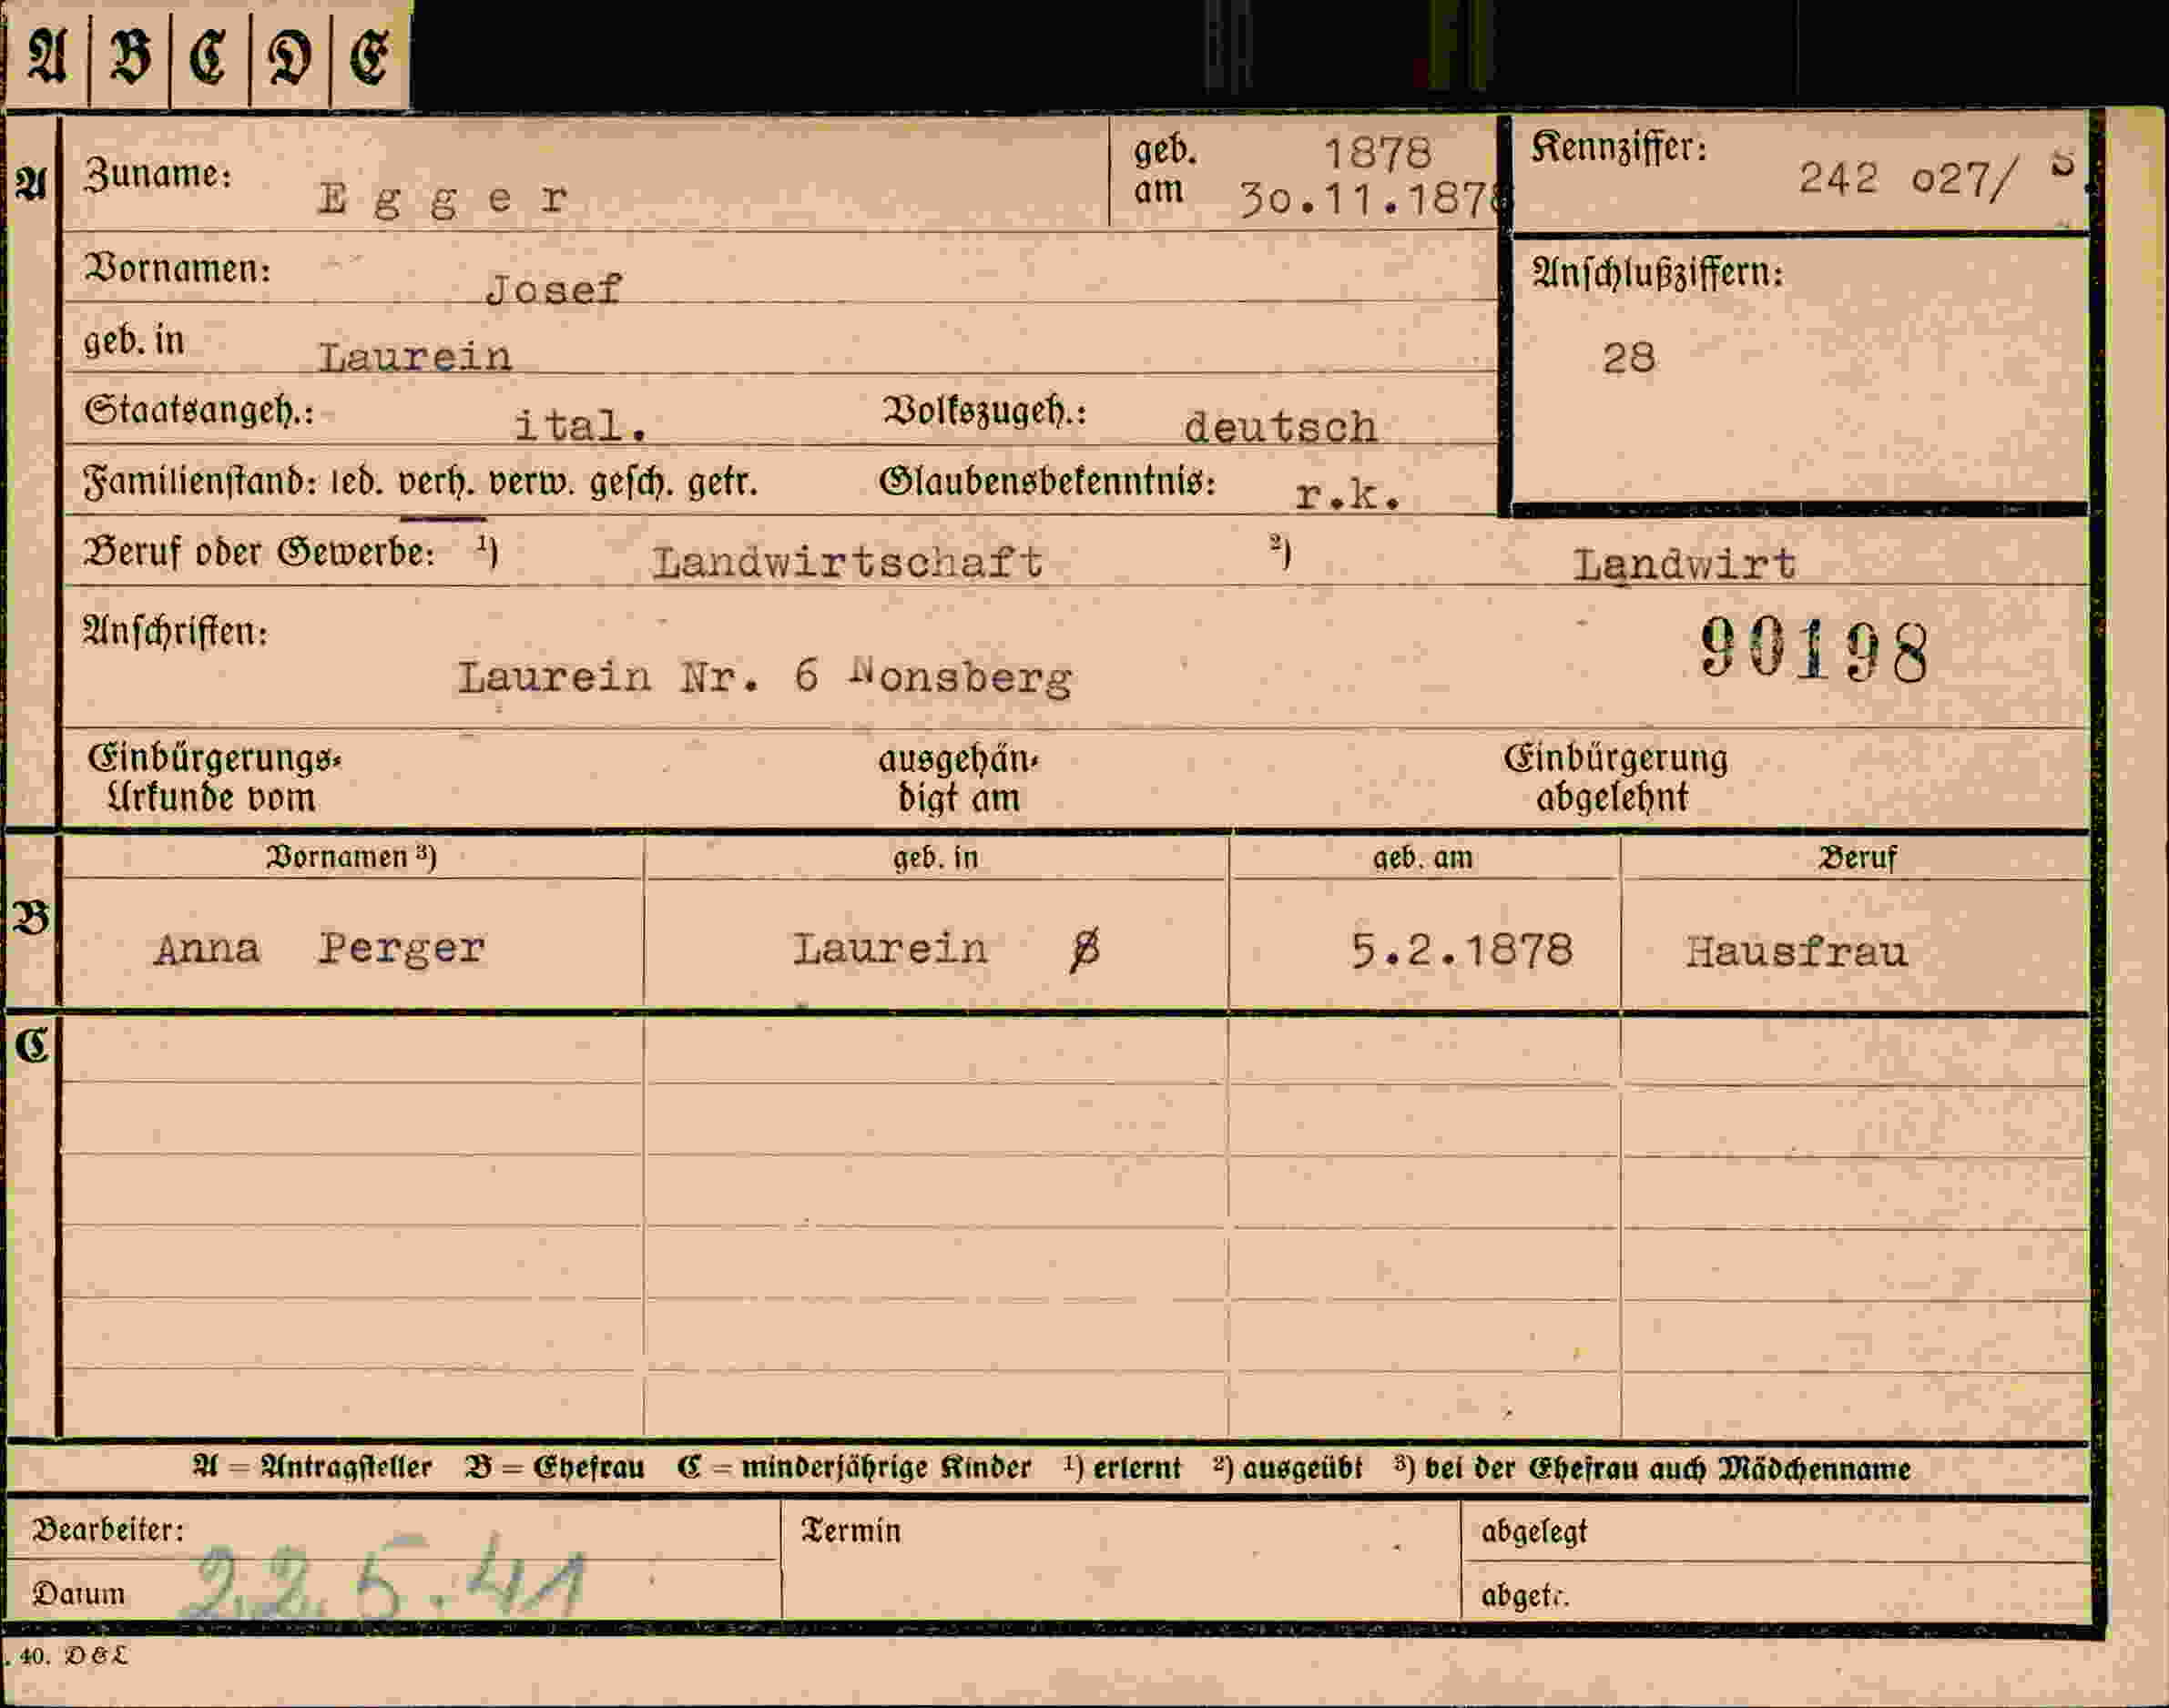 A B C D E
A Zuname: Egger geb. am 1878 30.11.1878 Kennziffer: 242 o27/
Vornamen: Josef Anschlußziffern:
geb. in Laurein 28
Staatsangeh.: ital. Volkszugeh.: deutsch
Familienstand: led. verh. verw. gesch. getr. Glaubensbekenntnis: r.k.
Beruf oder Gewerbe: 1) Landwirtschaft 2) Landwirt
Anschriften: 90198
Laurein Nr. 6 Nonsberg
Einbürgerungs- ausgehän- Einbürgerung
Urkunde vom digt am abgelehnt
Vornamen 3) geb. in geb. am Beruf
B Anna Perger Laurein 5.2.1878 Hausfrau
C
A = Antragsteller B = Ehefrau C = minderjährige Kinder 1) erlernt 2) ausgeübt 3) bei der Ehefrau auch Mädchenname
Bearbeiter: Termin abgelegt
Datum 22.5.41 abgetr.
. 40. D & L